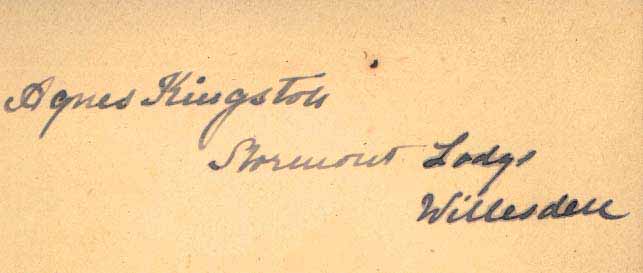 Agnes Kingston
Stormont Lodge
Willesden